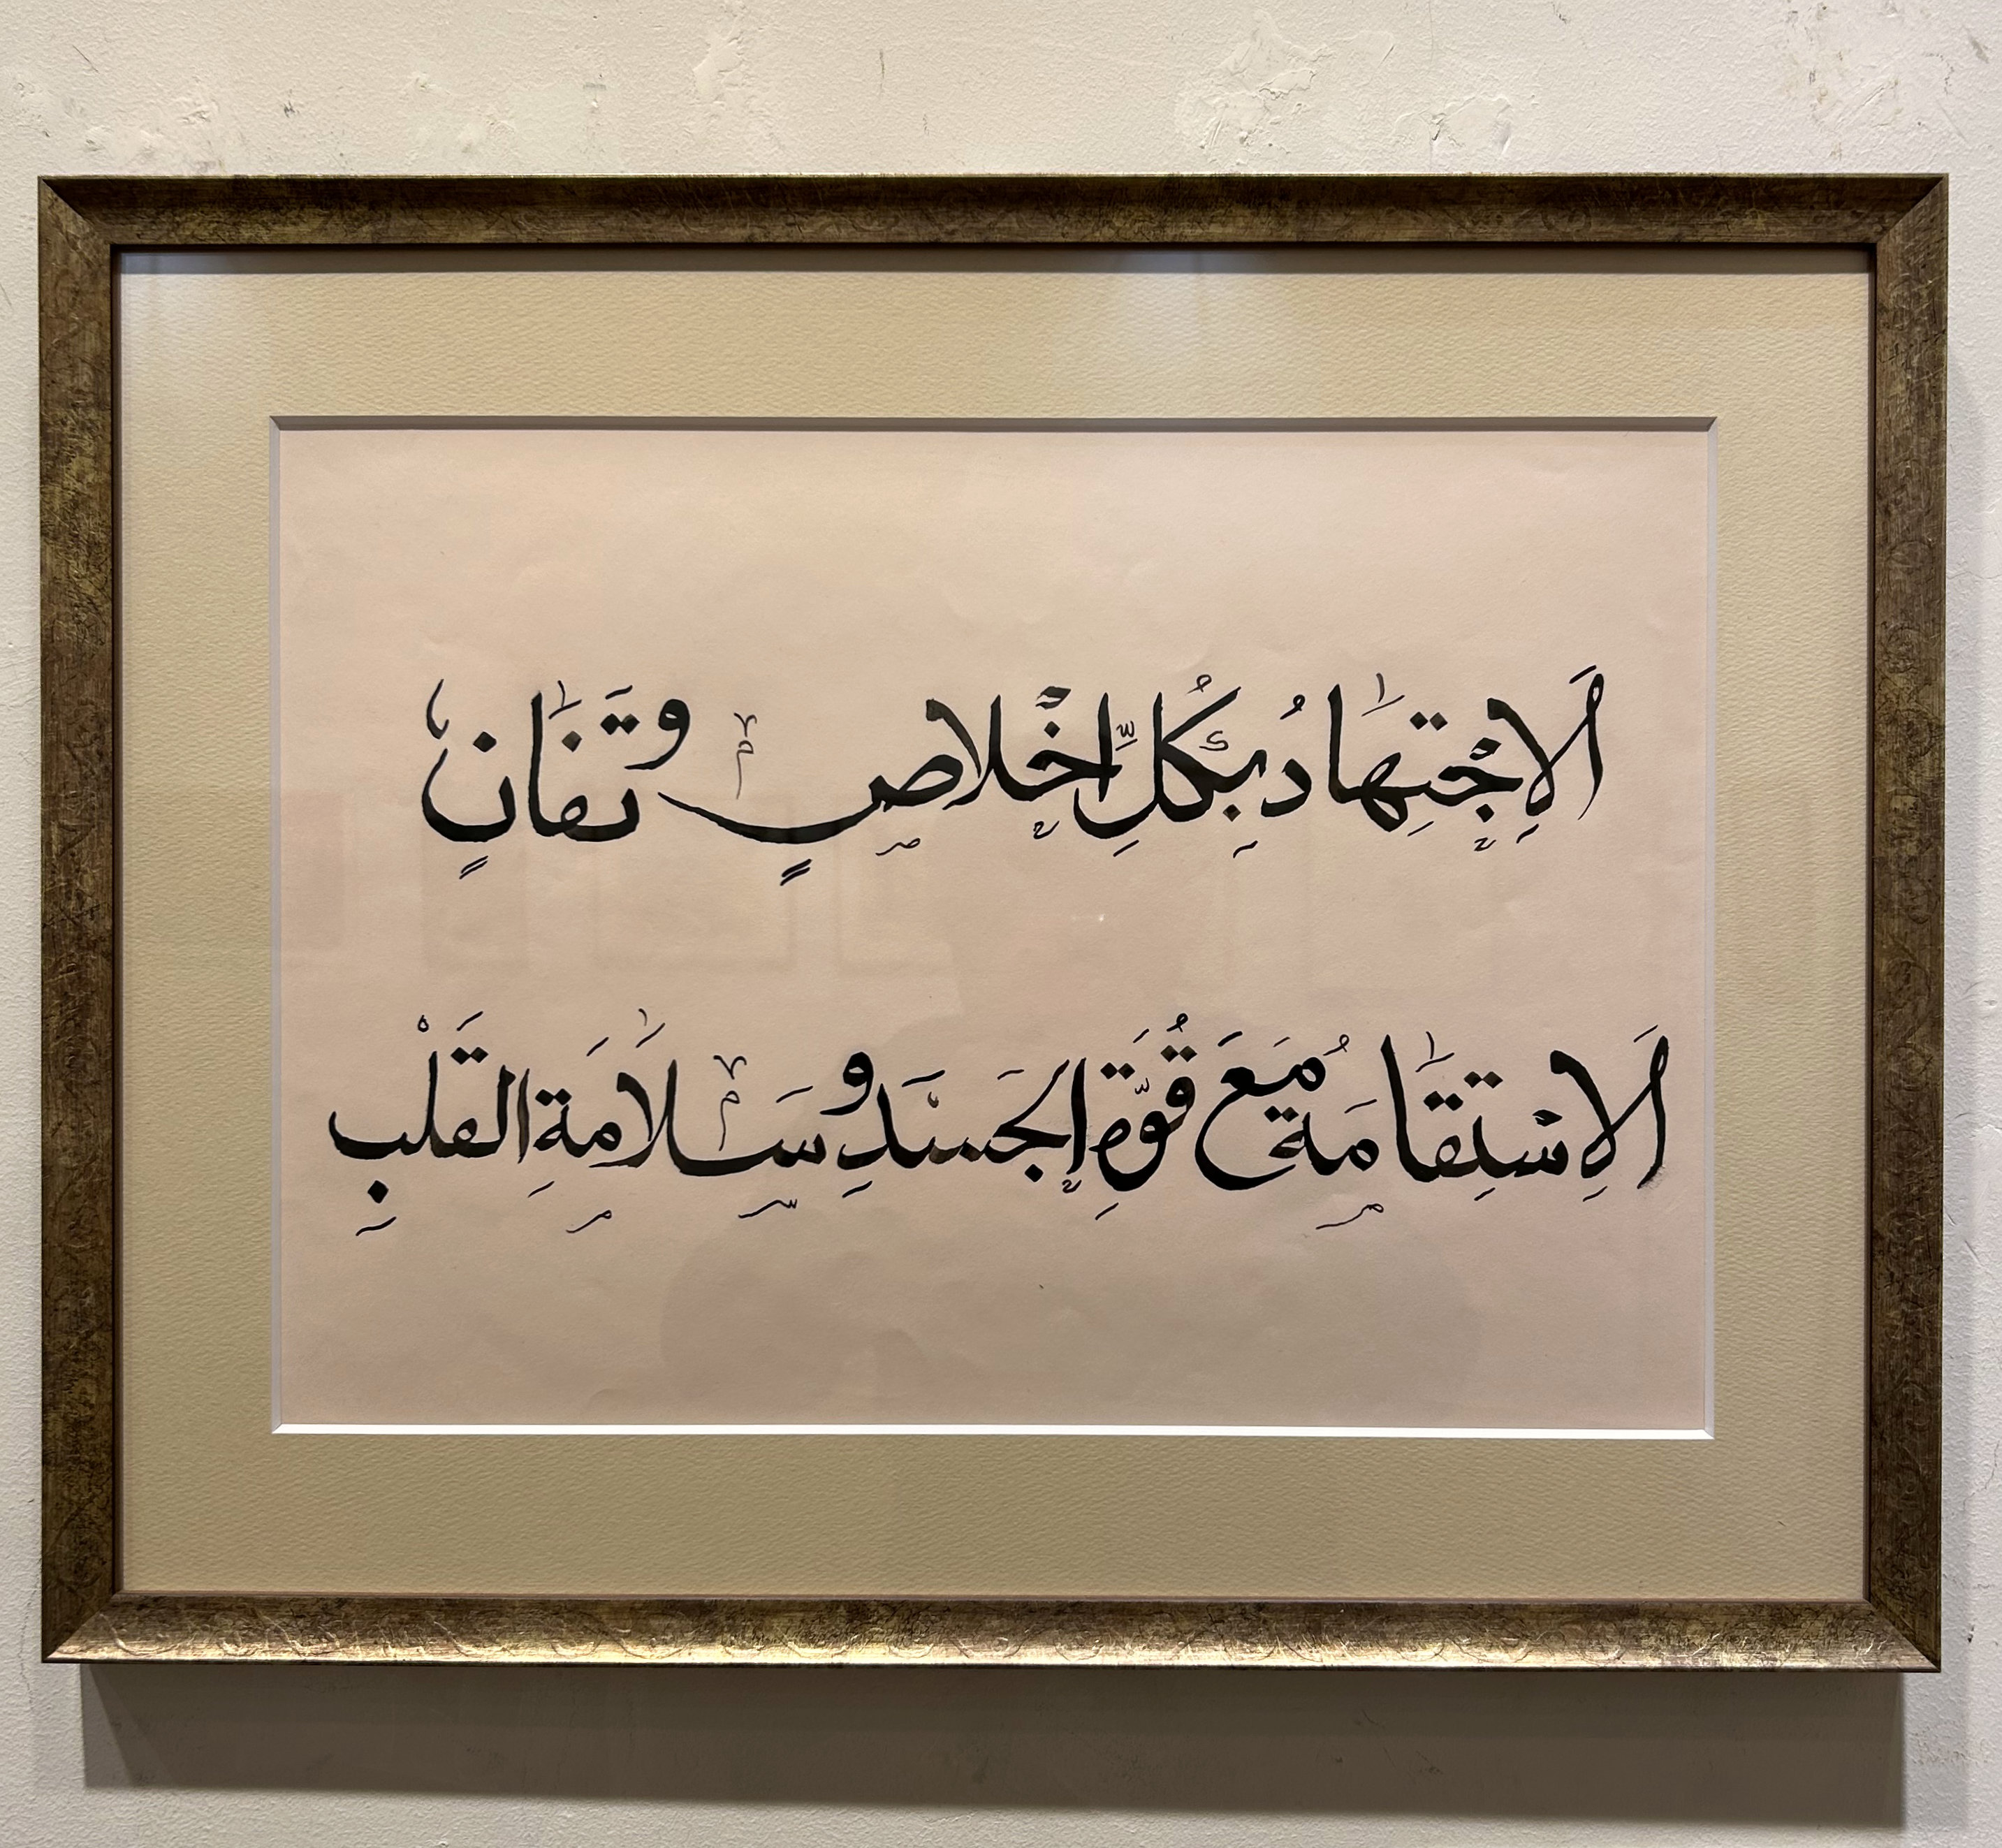 اَلاِجْتِهَادُ بِكُلِّ اِخْلَاصٍ وتَفَانٍ
اَلاِسْتِقَامَةُ مَعَ قُوَّةِ الجَسَدِ وسَلَامَةِ القَلْبِ